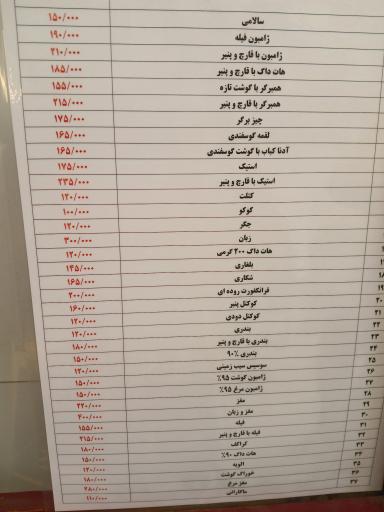 سالامی ۱۵۰/۰۰۰
ژامبون فیله ۱۹۰/۰۰۰
ژامبون با قارچ و پنیر ۲۱۰/۰۰۰
هات داگ با قارچ و پنیر ۱۸۵/۰۰۰
همبرگر با گوشت تازه ۱۵۵/۰۰۰
همبرگر با قارچ و پنیر ۲۱۵/۰۰۰
چیز برگر ۱۷۵/۰۰۰
لقمه گوسفندی ۱۶۵/۰۰۰
آدنا کباب با گوشت گوسفندی ۱۶۵/۰۰۰
استیک ۱۷۵/۰۰۰
استیک با قارچ و پنیر ۲۳۵/۰۰۰
کتلت ۱۲۰/۰۰۰
کوکو ۱۰۰/۰۰۰
جگر ۱۲۰/۰۰۰
زبان ۳۰۰/۰۰۰
هات داگ ۲۰۰ گرمی ۱۲۰/۰۰۰
بلغاری ۱۴۵/۰۰۰
شکاری ۱۶۵/۰۰۰
۱۹ فرانکفورت روده ای ۲۰۰/۰۰۰
۲۰ کوکتل پنیر ۱۶۰/۰۰۰
۲۱ کوکتل دودی ۱۲۰/۰۰۰
۲۲ بندری ۱۲۰/۰۰۰
۲۳ بندری با قارچ و پنیر ۱۸۰/۰۰۰
۲۴ بندری ۹۰٪ ۱۵۰/۰۰۰
۲۵ سوسیس سیب زمینی ۱۲۰/۰۰۰
۲۶ ژامبون گوشت ۹۵٪ ۱۵۰/۰۰۰
۲۷ ژامبون مرغ ۹۵٪ ۱۵۰/۰۰۰
۲۸ مغز ۲۲۰/۰۰۰
۲۹ مغز و زبان ۴۰۰/۰۰۰
۳۰ فیله ۱۵۵/۰۰۰
۳۱ فیله با قارچ و پنیر ۲۱۵/۰۰۰
۳۲ کراکف ۱۸۰/۰۰۰
۳۳ هات داگ ۹۰٪ ۱۵۰/۰۰۰
۳۴ الویه ۱۲۰/۰۰۰
۳۵ خوراک گوشت ۱۸۰/۰۰۰
۳۶ مغز مرغ ۲۸۰/۰۰۰
۳۷ ماکارانی ۱۱۰/۰۰۰